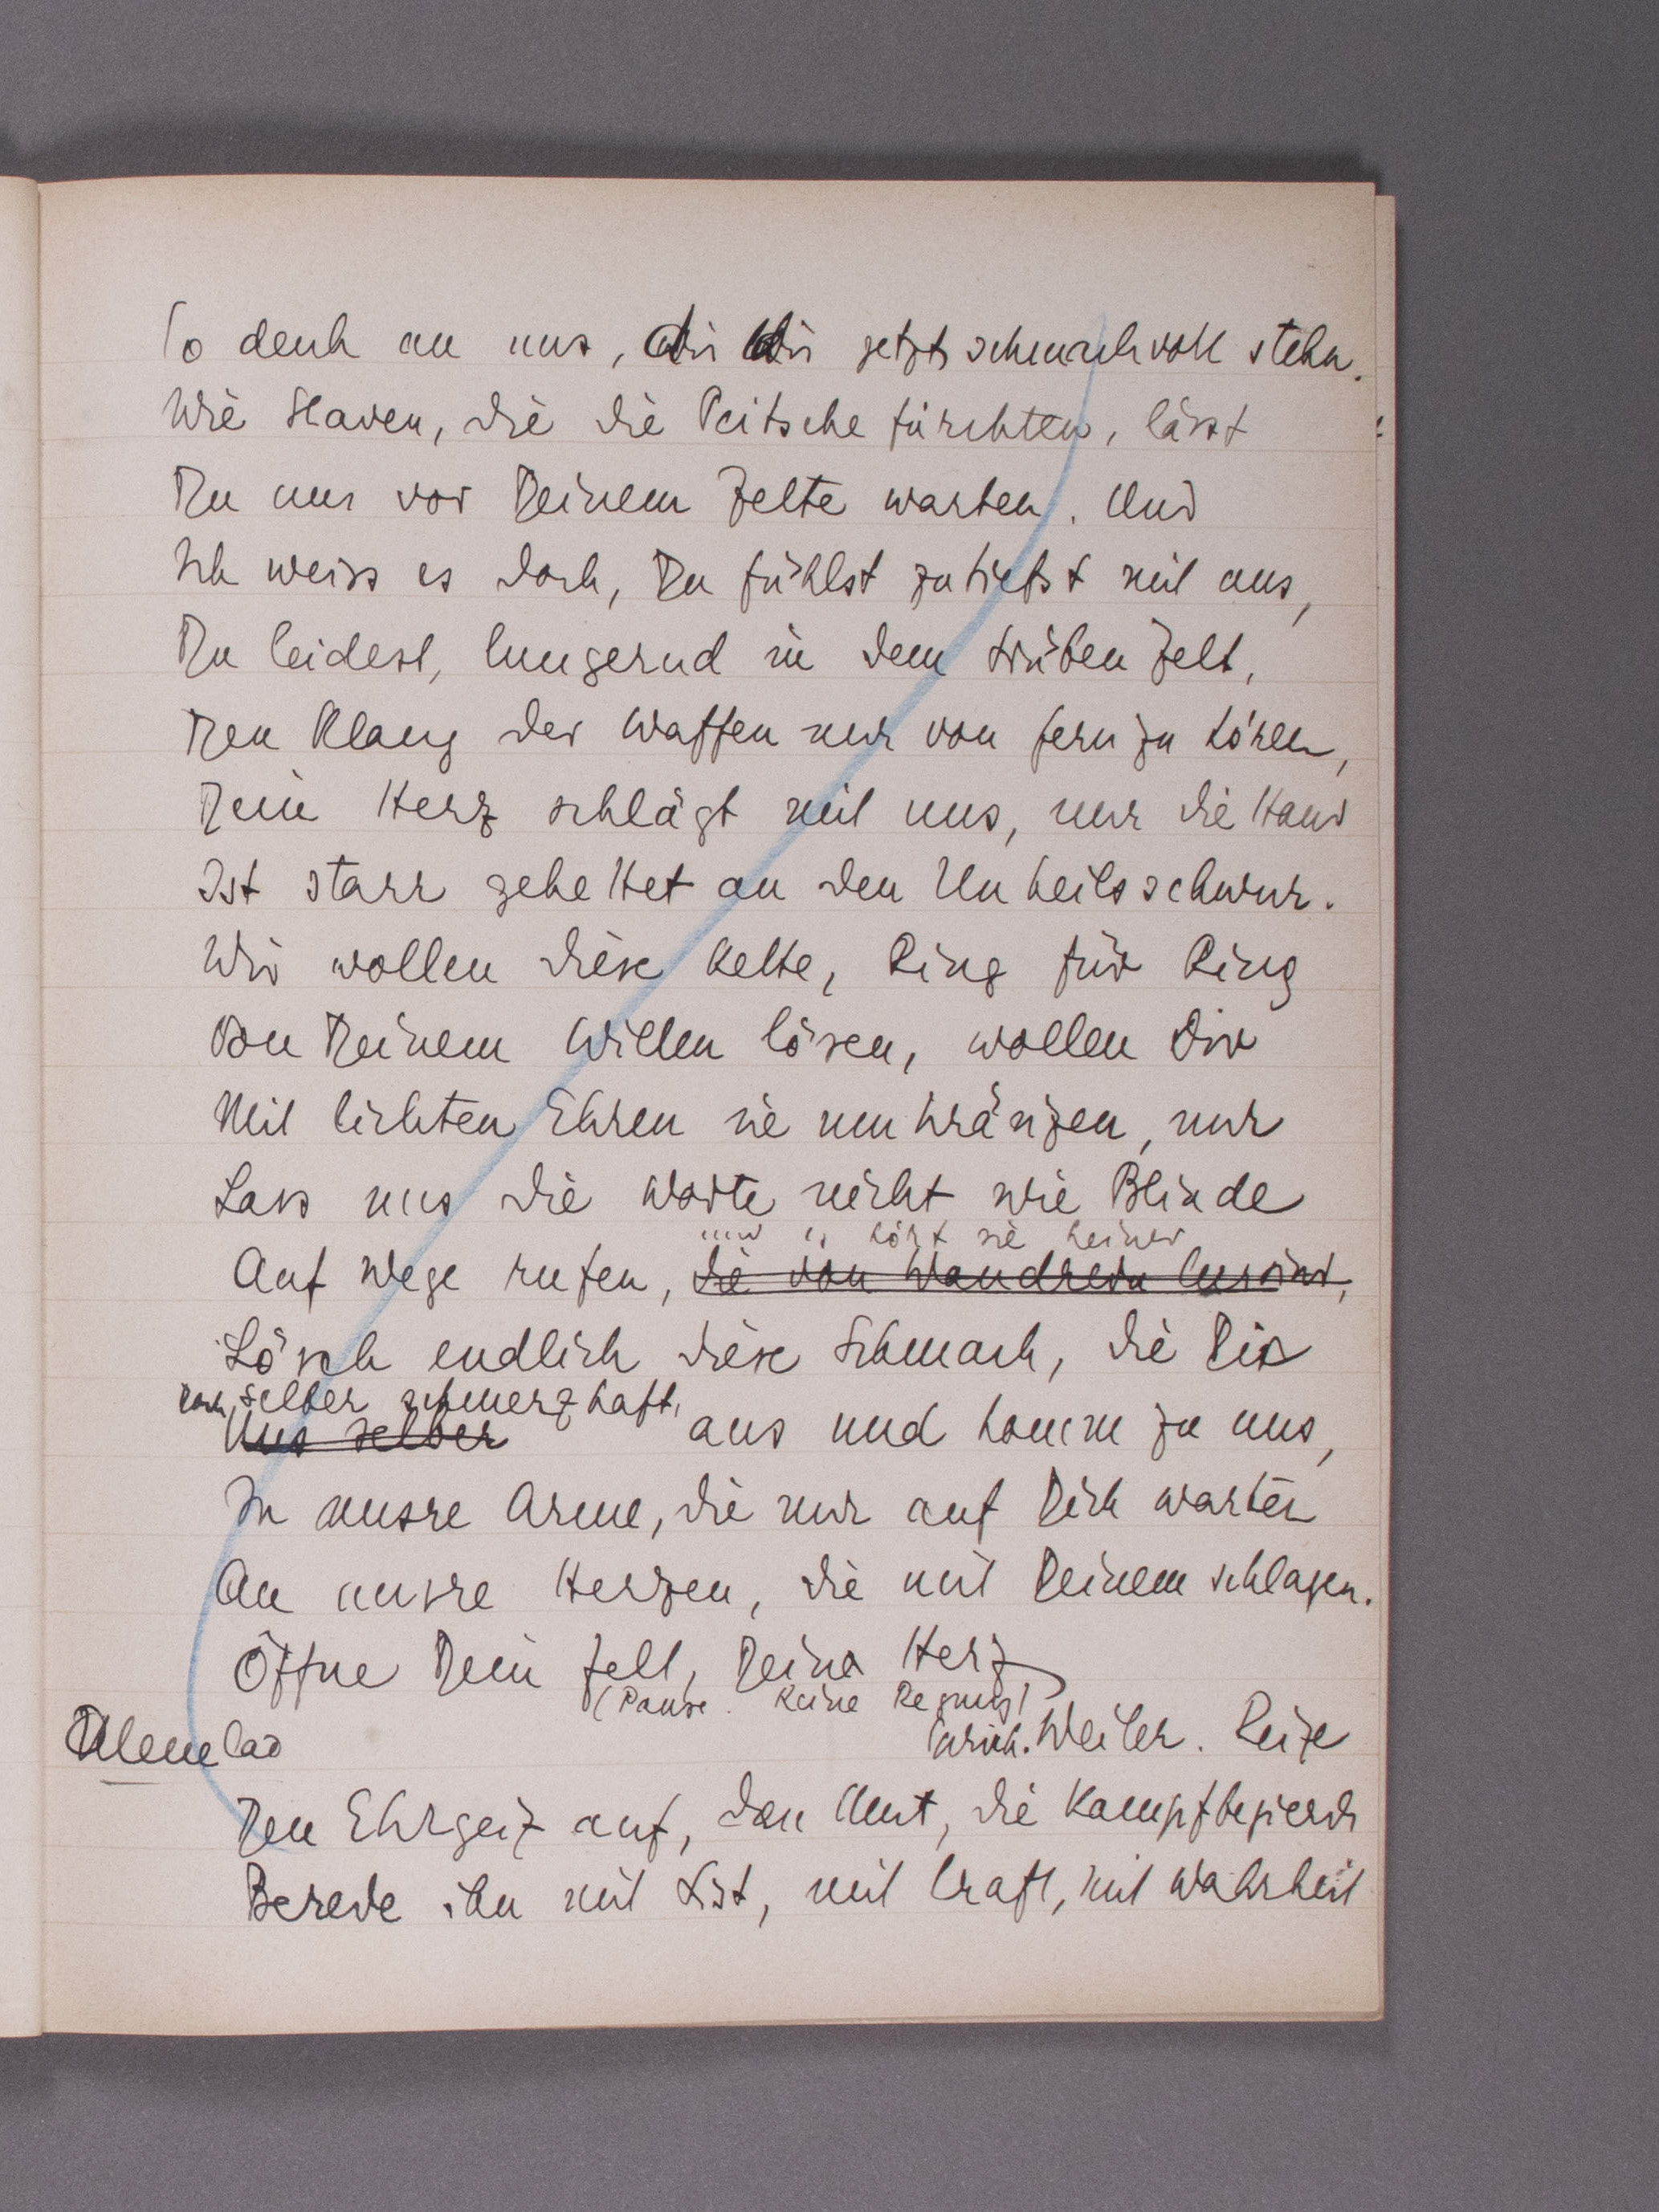 So denk an uns, die hier jetzt schmachvoll stehn.
Wie Sklaven, die die Peitsche fürchten, lässt
Du uns vor Deinem Zelte warten. Und
Ich weiss es doch, Du fühlst zutiefst mit uns,
Du leidest, lungernd in dem trüben Zelt,
Den Klang der Waffen nur von fern zu hören,
Dein Herz schlägt mit uns, nur die Hand
Ist starr gekettet an den Unheilsschwur.
Wir wollen diese Kette, Ring für Ring
Von Deinem Willen lösen, wollen Dir
Mit lichten Ehren sie umkränzen, nur
Lass uns die Worte nicht wie Blinde
hört sie keiner
Auf Wege rufen, die von Wandrern leer sind,
Lösch endlich diese Schmach, die Dir
Doch selber schmerzhaft,
Uns selber aus und komm zu uns,
In unsre Arme, die nur auf Dich warten
An unsre Herzen, die mit Deinem schlagen.
Öffne Dein Zelt, Dein Herz
(Pause. Keine Regung)
Menelas Weiter. Reize
Den Ehrgeiz auf, den Mut, die Kampfbegierde
Berede ihn mit List, mit Kraft, mit Wahrheit